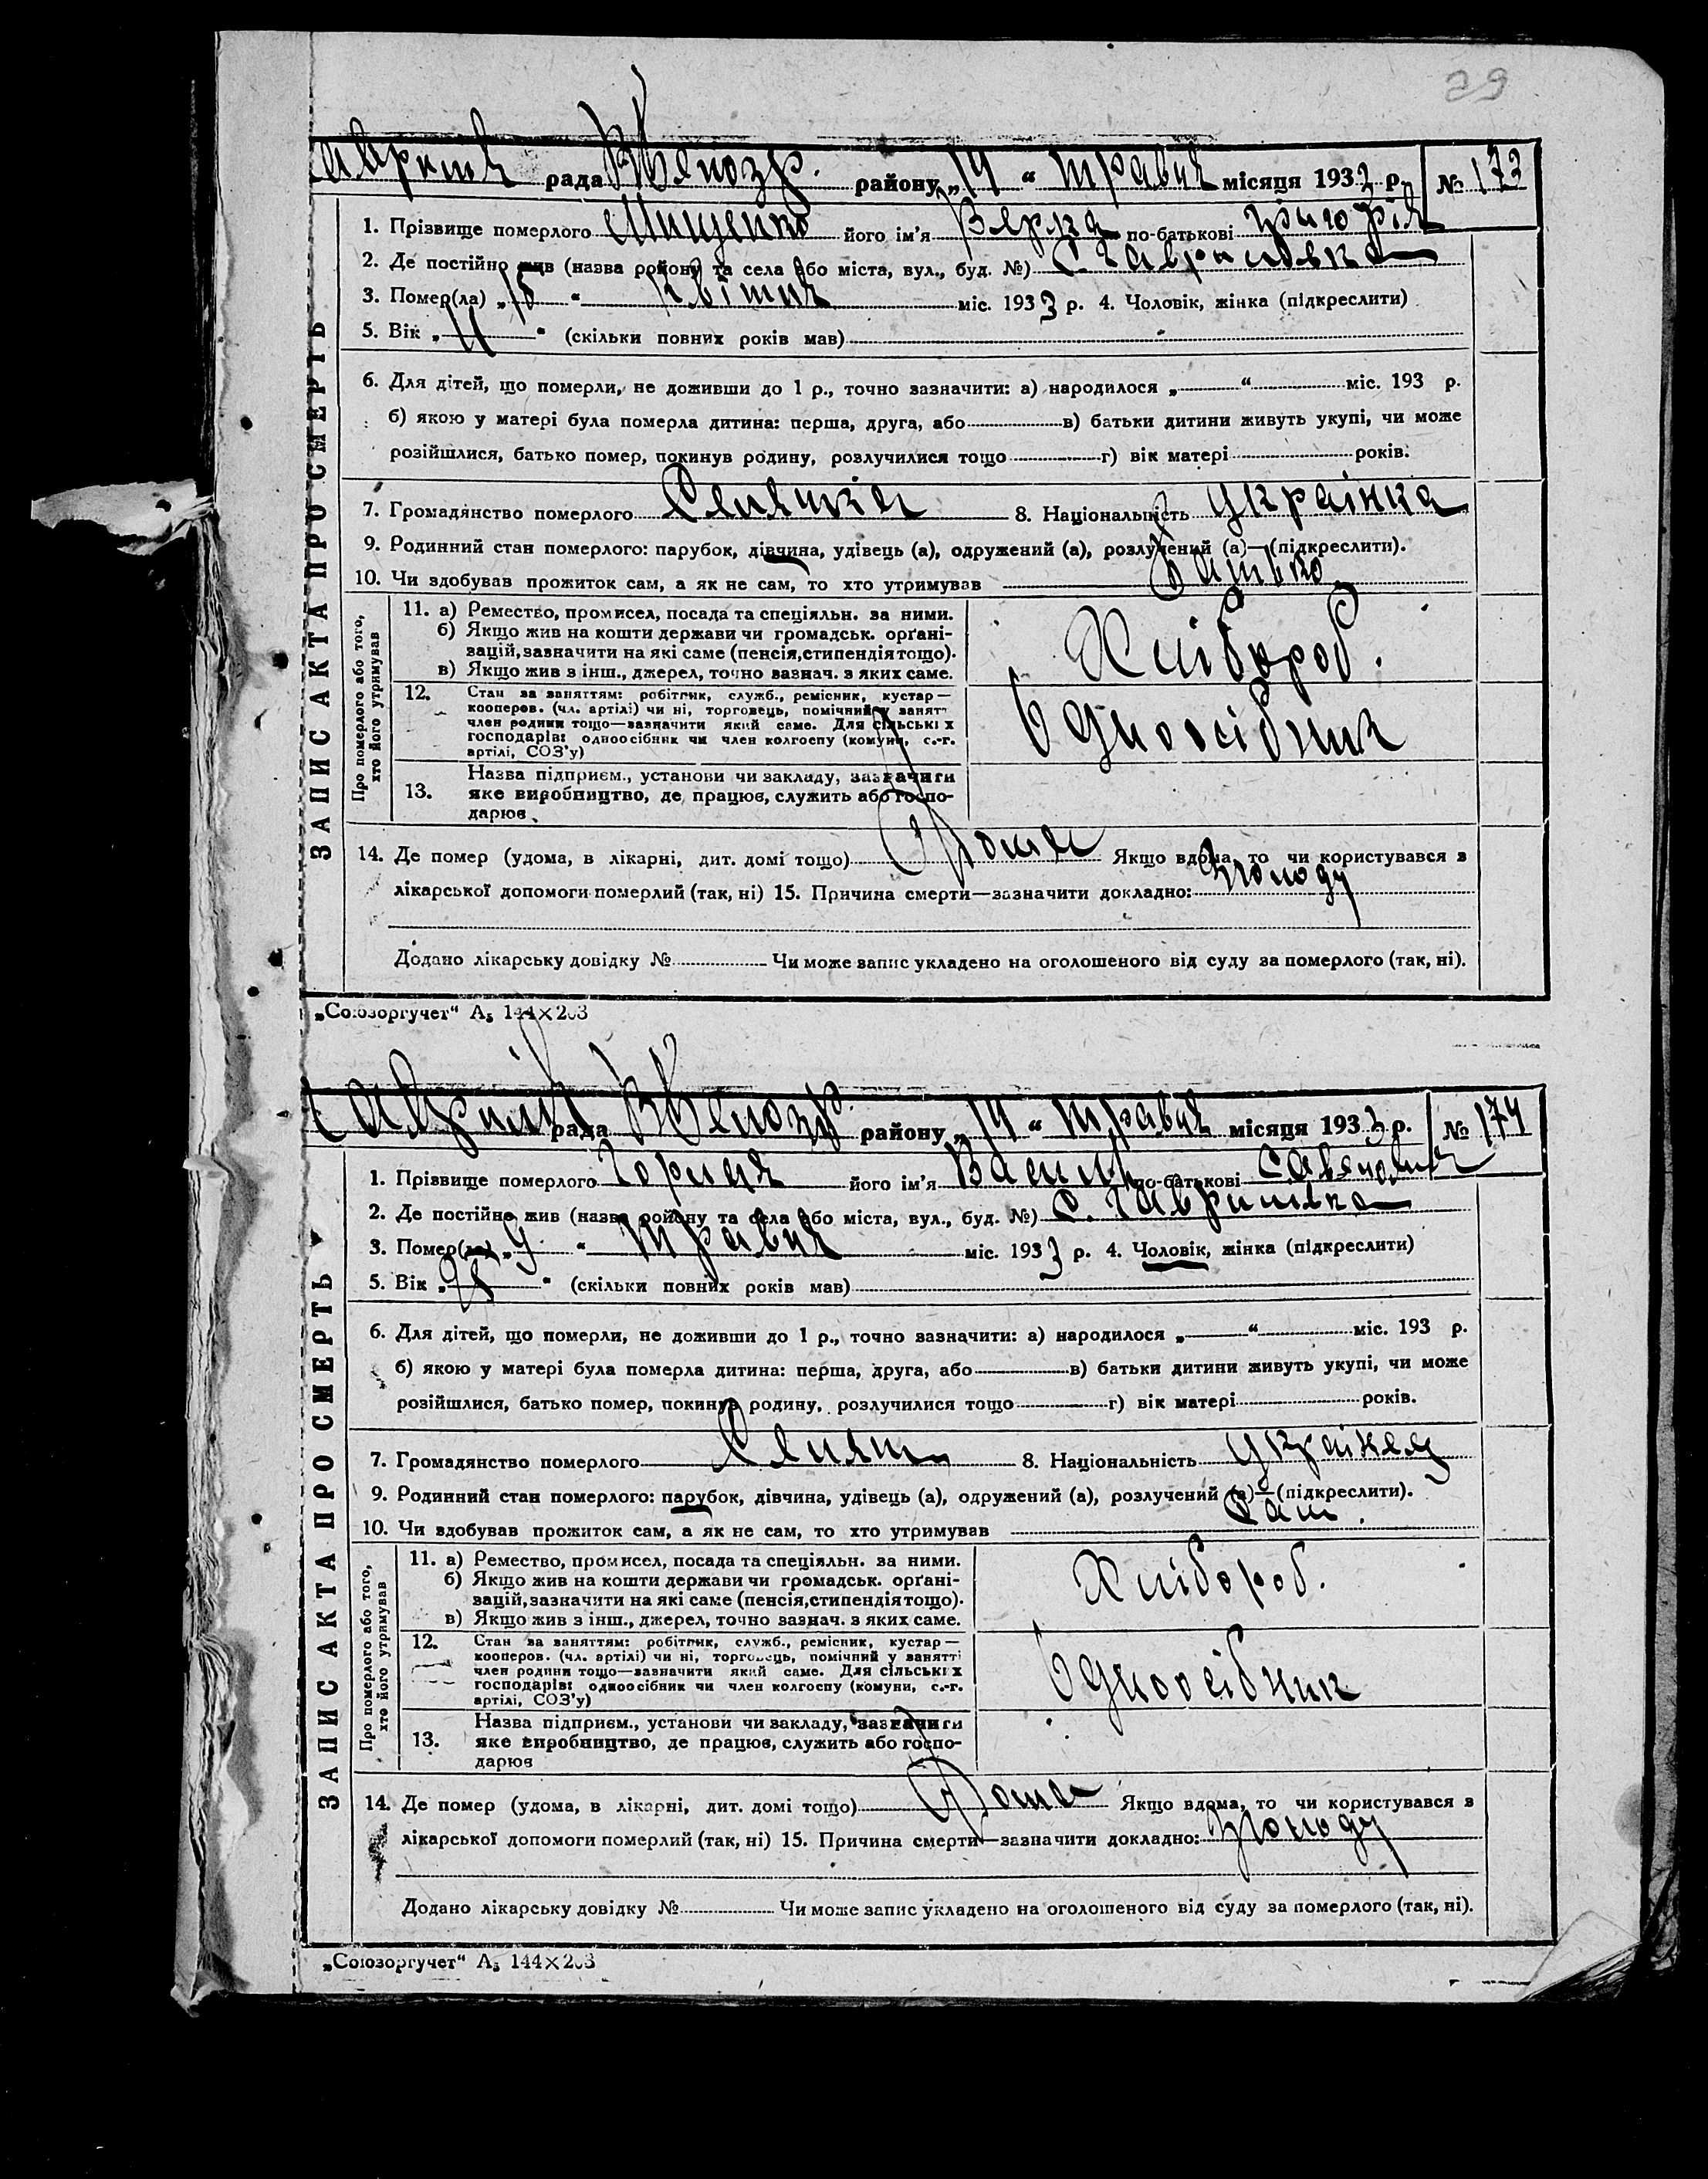 29
рада району „14“ травня місяця 1933 р. № 173
1. Прізвище померлого Мищенко його ім'я по-батькові Григорія
2. Де постійно жив (назва району та села або міста, вул., буд. №) С. Гаврилівка
3. Помер(ла) „15“ Квітня міс. 1933 р. 4. Чоловік, жінка (підкреслити)
5. Вік „11“ (скільки повних років мав)
6. Для дітей, що померли, не доживши до 1 р., точно зазначити: а) народилося „ “ міс. 193 р.
б) якою у матері була померла дитина: перша, друга, або в) батьки дитини живуть укупі, чи може
розійшлися, батько помер, покинув родину, розлучилися тощо г) вік матері років.
7. Громадянство померлого Селянка 8. Національність Українка
9. Родинний стан померлого: парубок, дівчина, удівець (а), одружений (а), розлучений (а)—(підкреслити).
10. Чи здобував прожиток сам, а як не сам, то хто утримував Батько
11. а) Ремество, промисел, посада та спеціяльн. за ними.
б) Якщо жив на кошти держави чи громадськ. орґані-
зацій, зазначити на які саме (пенсія, стипендія тощо).
в) Якщо жив з інш., джерел, точно зазнач. з яких саме.
Хлібороб.
12. Стан за заняттям: робітник, служб., ремісник, кустар—
кооперов. (чл. артілі) чи ні, торговець, помічний у занятті
член родини тощо—зазначити який саме. Для сільських
господарів: одноосібник чи член колгоспу (комуни, с.-г.
артілі, СОЗ'у)
Одноосібник
13. Назва підприєм., установи чи закладу, зазначити
яке виробництво, де працює, служить або госпо-
дарює
Про померлого або того,
хто його утримував
14. Де помер (удома, в лікарні, дит. домі тощо) Дома Якщо вдома, то чи користувався з
лікарської допомоги померлий (так, ні) 15. Причина смерти—зазначити докладно: з голоду
Додано лікарську довідку № Чи може запис укладено на оголошеного від суду за померлого (так, ні).
ЗАПИС АКТА ПРО СМЕРТЬ
„Союзоргучет“ А₅ 144×203
рада району „14“ травня місяця 1933 р. № 174
1. Прізвище померлого Горпиця його ім'я Василь по-батькові
2. Де постійно жив (назва району та села або міста, вул., буд. №) С. Гаврилівка
3. Помер(ла) „9“ травня міс. 1933 р. 4. Чоловік, жінка (підкреслити)
5. Вік „ “ (скільки повних років мав)
6. Для дітей, що померли, не доживши до 1 р., точно зазначити: а) народилося „ “ міс. 193 р.
б) якою у матері була померла дитина: перша, друга, або в) батьки дитини живуть укупі, чи може
розійшлися, батько помер, покинув родину, розлучилися тощо г) вік матері років.
7. Громадянство померлого Селян. 8. Національність Українец
9. Родинний стан померлого: парубок, дівчина, удівець (а), одружений (а), розлучений (а)—(підкреслити).
10. Чи здобував прожиток сам, а як не сам, то хто утримував Сам.
11. а) Ремество, промисел, посада та спеціяльн. за ними.
б) Якщо жив на кошти держави чи громадськ. орґані-
зацій, зазначити на які саме (пенсія, стипендія тощо).
в) Якщо жив з інш., джерел, точно зазнач. з яких саме.
Хлібороб.
12. Стан за заняттям: робітник, служб., ремісник, кустар—
кооперов. (чл. артілі) чи ні, торговець, помічний у занятті
член родини тощо—зазначити який саме. Для сільських
господарів: одноосібник чи член колгоспу (комуни, с.-г.
артілі, СОЗ'у)
Одноосібник
13. Назва підприєм., установи чи закладу, зазначити
яке виробництво, де працює, служить або госпо-
дарює
Про померлого або того,
хто його утримував
14. Де помер (удома, в лікарні, дит. домі тощо) Дома Якщо вдома, то чи користувався з
лікарської допомоги померлий (так, ні) 15. Причина смерти—зазначити докладно: з голоду
Додано лікарську довідку № Чи може запис укладено на оголошеного від суду за померлого (так, ні).
ЗАПИС АКТА ПРО СМЕРТЬ
„Союзоргучет“ А₅ 144×203